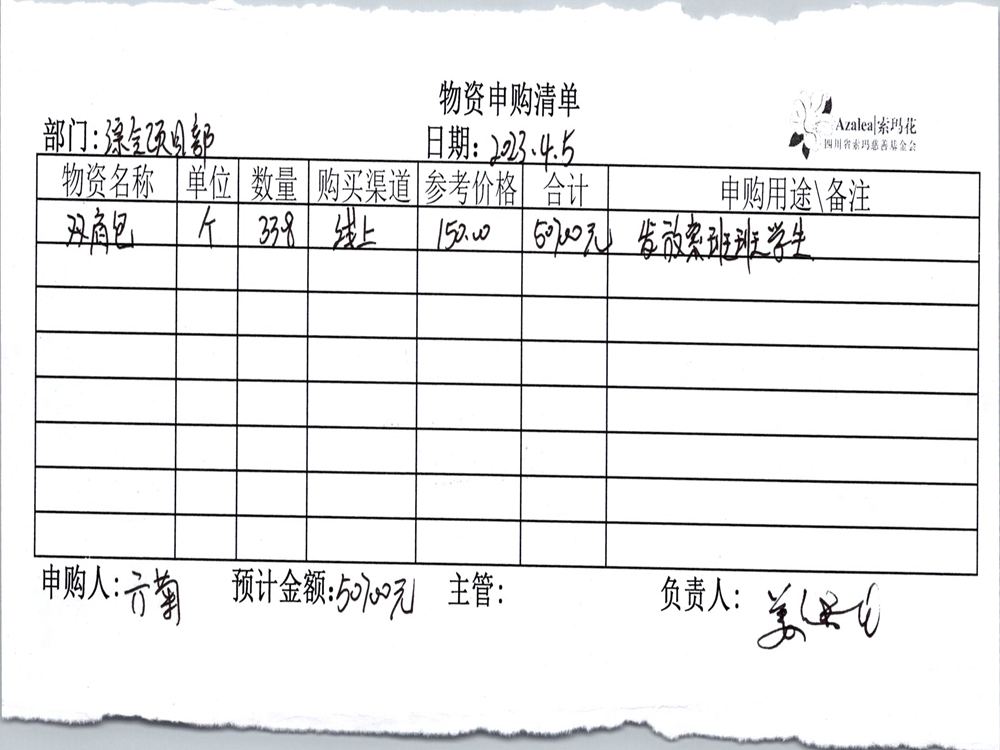 物资申购清单
Azalea|索玛花
四川省索玛慈善基金会
部门:综合项目部
日期:2023.4.5
物资名称 单位 数量 购买渠道 参考价格 合计 申购用途\备注
双肩包 个 338 线上 150.00 50700元 发放索班班学生
申购人:方菊 预计金额:50700元 主管: 负责人: